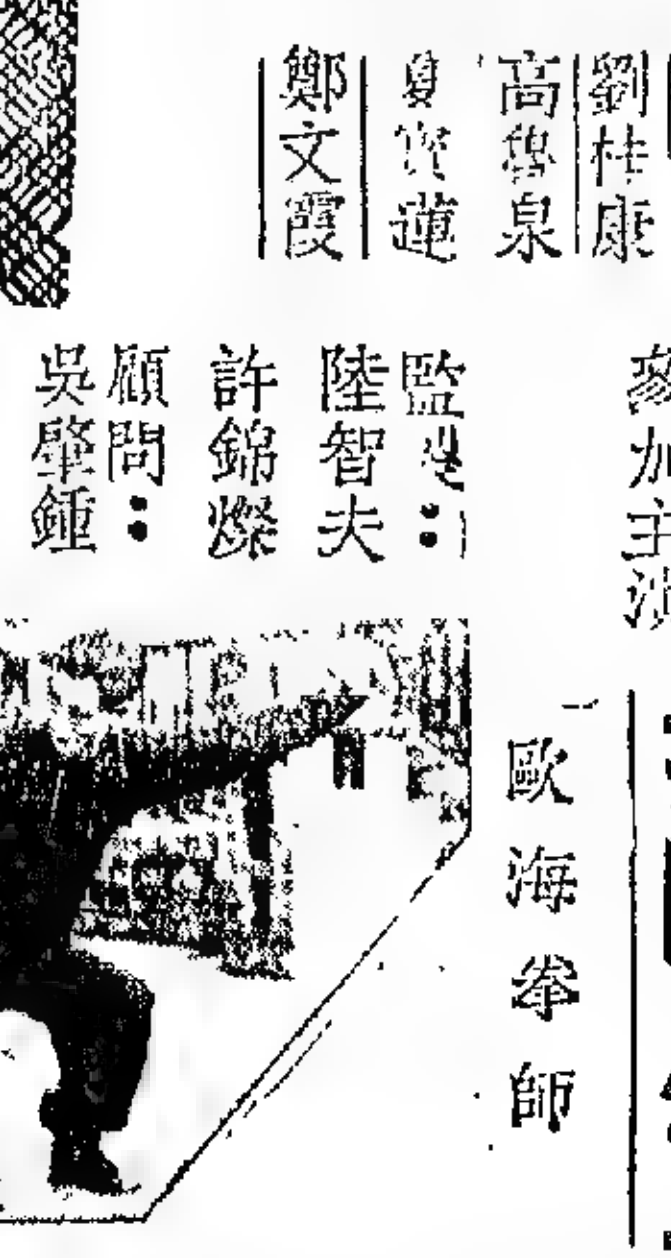 劉桂康
高魯泉
夏寶蓮
鄭文霞
參加主演
監是：
陸智夫
許錦燦
顧問：
吳肇鍾
歐海拳師